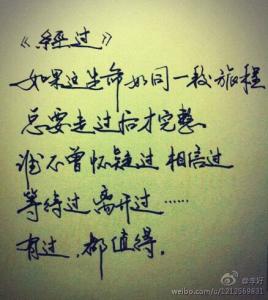 《經过》
如果这生命如同一段旅程
总要走过后才完整
谁不曾怀疑过 相信过
等待过 离开过……
有过，都值得。
@李好
weibo.com/c/1212569831